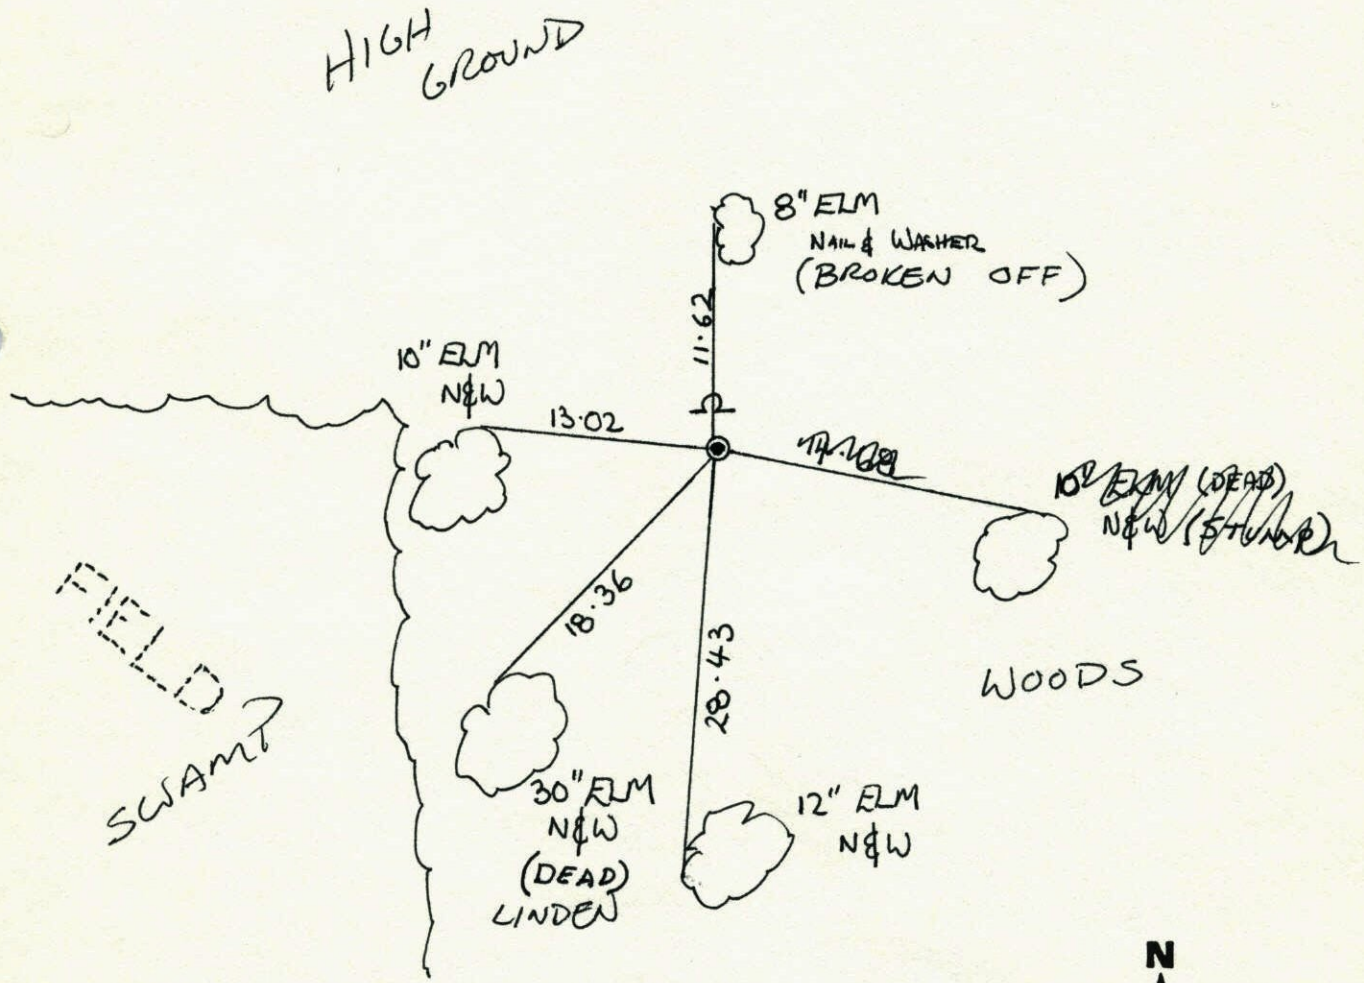 HIGH
GROUND
8" ELM
NAIL & WASHER
(BROKEN OFF)
11.62
10" ELM
N&W
13.02
14.68
10" ELM (DEAD)
N&W (STUMP)
18.36
28.43
FIELD
SWAMP
WOODS
30" ELM
N&W
(DEAD)
LINDEN
12" ELM
N&W
N